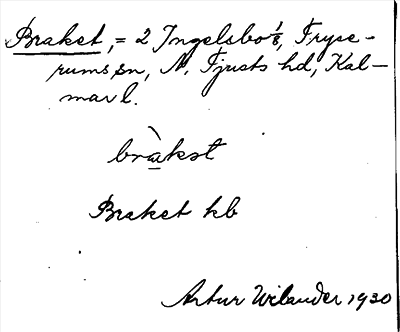 Braket, = 2 Ingelsbo 1/8, Fryse-
rums sn, N. Tjusts hd, Kal-
mar l.
brakət
Braket kb
Artur Wilander 1930